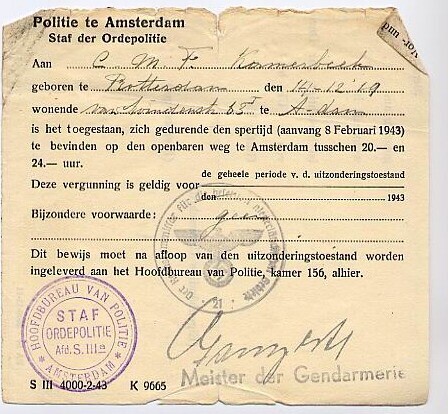 Politie te Amsterdam
Staf der Ordepolitie
Aan C. M. F. Kamerbeek
geboren te Rotterdam den 14-12-'19
wonende te A-dam
is het toegestaan, zich gedurende den spertijd (aanvang 8 Februari 1943)
te bevinden op den openbaren weg te Amsterdam tusschen 20.— en
24.— uur.
Deze vergunning is geldig voor de geheele periode v. d. uitzonderingstoestand
den 1943
Bijzondere voorwaarde: geen
Dit bewijs moet na afloop van den uitzonderingstoestand worden
ingeleverd aan het Hoofdbureau van Politie, kamer 156, alhier.
HOOFDBUREAU VAN POLITIE
STAF
ORDEPOLITIE
Afd. S. IIIa
* AMSTERDAM *
21
Meister der Gendarmerie
S III 4000-2-43 K 9665